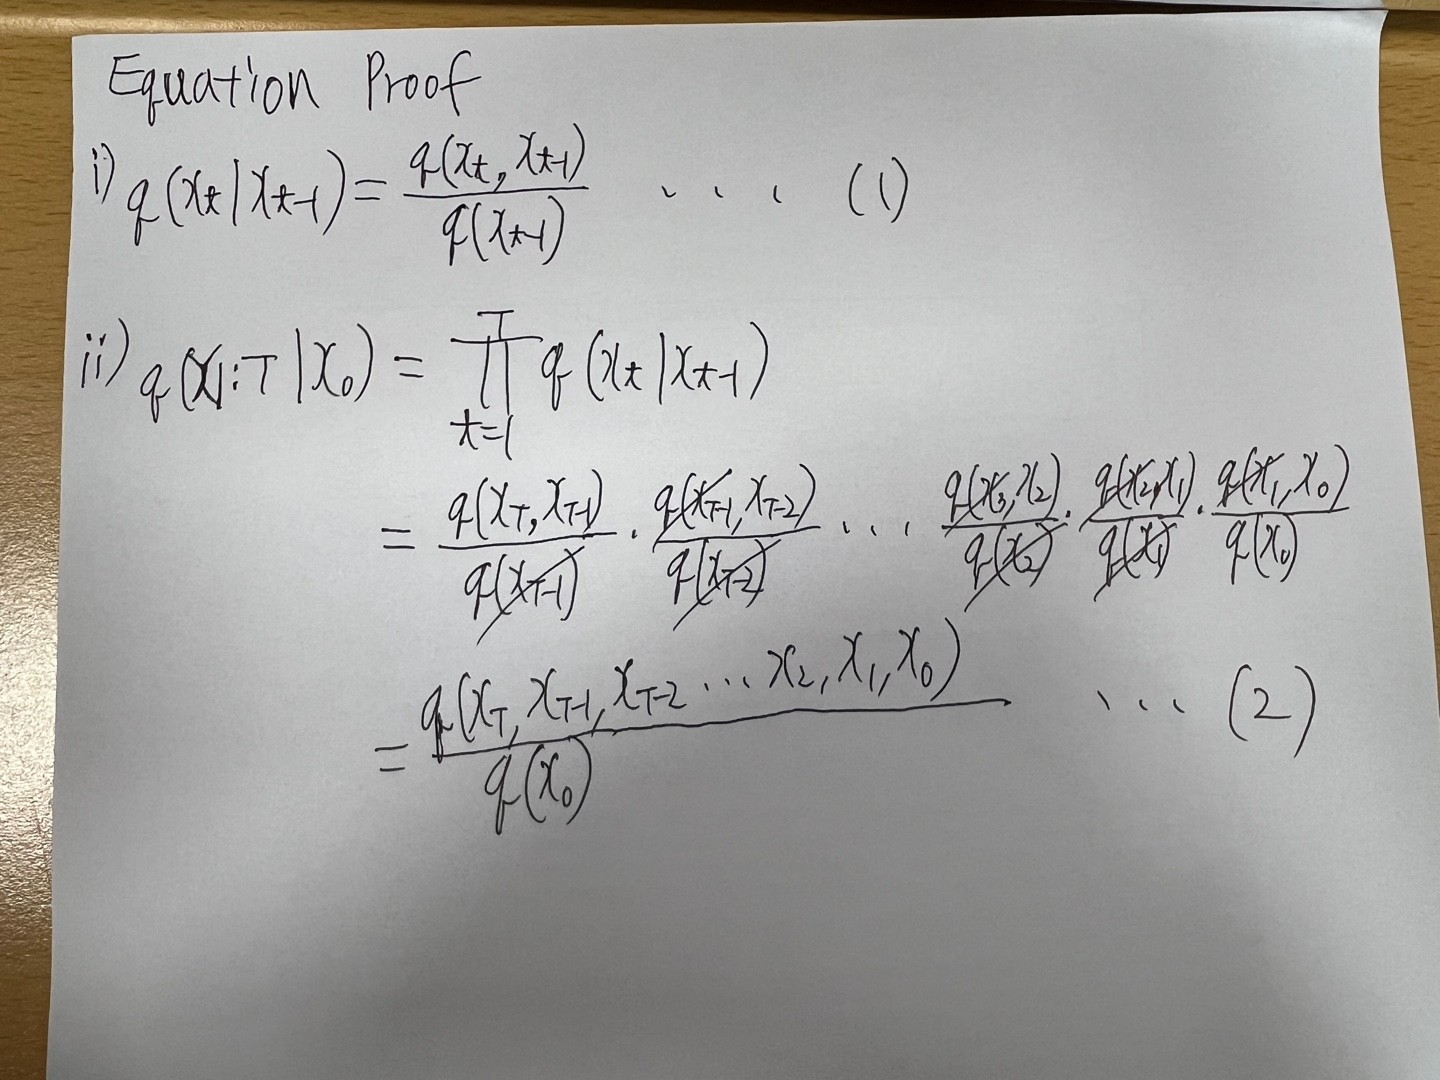 Equation Proof
i) q(x_t | x_{t-1}) = \frac{q(x_t, x_{t-1})}{q(x_{t-1})} ... (1)
ii) q(x_{1:T} | x_0) = \prod_{t=1}^{T} q(x_t | x_{t-1})
= \frac{q(x_T, x_{T-1})}{q(x_{T-1})} · \frac{q(x_{T-1}, x_{T-2})}{q(x_{T-2})} ... \frac{q(x_3, x_2)}{q(x_2)} · \frac{q(x_2, x_1)}{q(x_1)} · \frac{q(x_1, x_0)}{q(x_0)}
= \frac{q(x_T, x_{T-1}, x_{T-2} ... x_2, x_1, x_0)}{q(x_0)} ... (2)